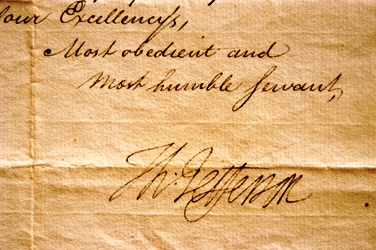 Your Excellency's,
Most obedient and
most humble Servant,
Th: Jefferson